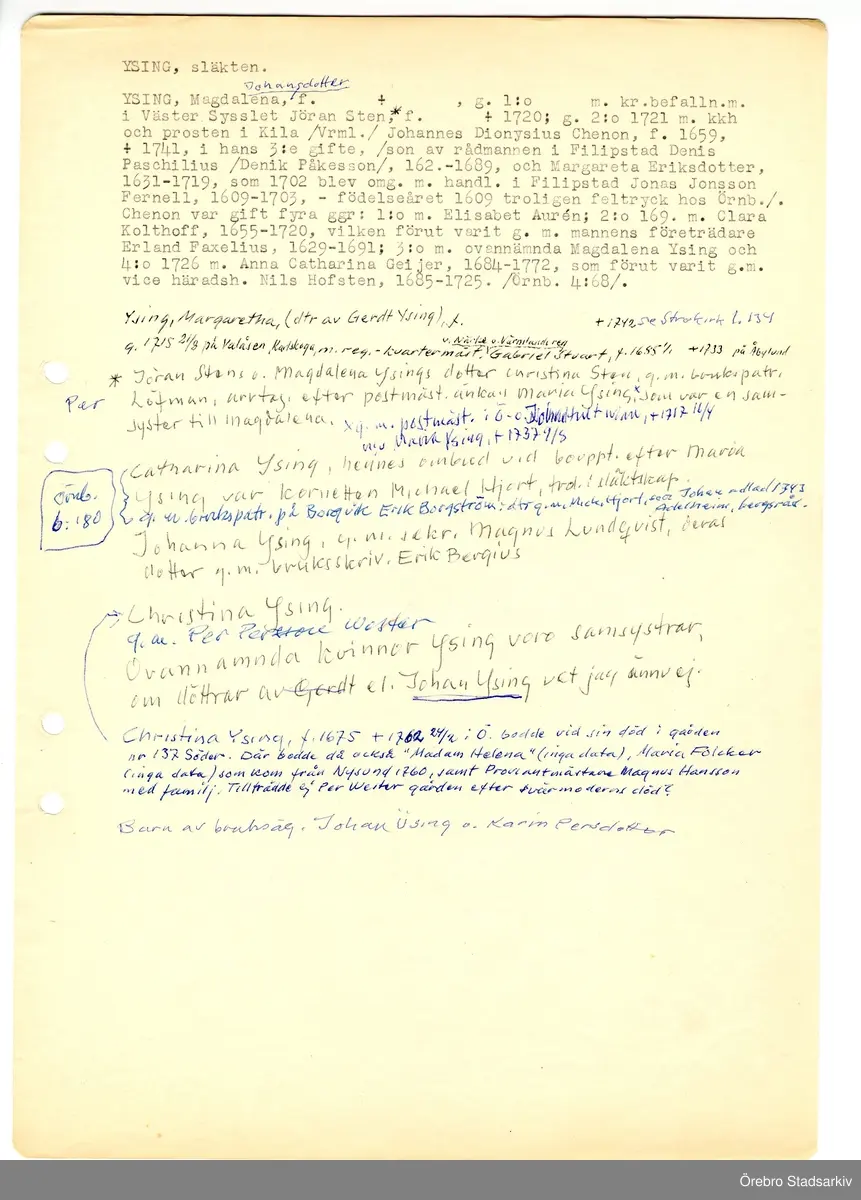 YSING, släkten.
Johansdotter
YSING, Magdalena, f. + , g. 1:o m. kr.befalln.m.
i Väster Sysslet Jöran Sten,* f. + 1720; g. 2:o 1721 m. kkh
och prosten i Kila /Vrml./ Johannes Dionysius Chenon, f. 1659,
+ 1741, i hans 3:e gifte, /son av rådmannen i Filipstad Denis
Paschilius /Denik Påkesson/, 162.-1689, och Margareta Eriksdotter,
1631-1719, som 1702 blev omg. m. handl. i Filipstad Jonas Jonsson
Fernell, 1609-1703, - födelseåret 1609 troligen feltryck hos Örnb./.
Chenon var gift fyra ggr: 1:o m. Elisabet Aurén; 2:o 169. m. Clara
Kolthoff, 1655-1720, vilken förut varit g. m. mannens företrädare
Erland Faxelius, 1629-1691; 3:o m. ovannämnda Magdalena Ysing och
4:o 1726 m. Anna Catharina Geijer, 1684-1772, som förut varit g.m.
vice häradsh. Nils Hofsten, 1685-1725. /Örnb. 4:68/.
Ysing, Margaretha, (dtr av Gerdt Ysing), f. + 1742 se Strokirk l. 134
v. Närke o. Värmlands reg
g. 1715 21/8 på Valåsen, Karlskoga, m. reg.-kvartermäst. Gabriel Stuart, f. 1685 +1733 på Åbylund
* Jöran Stens o. Magdalena Ysings dotter Christina Sten, g.m. brukspatr.
Per Löfman, arvtag. efter postmäst. änkan Maria Ysing,x som var en sam-
syster till Magdalena. x g. m. postmäst. i Ö-o +1717
Maria Ysing, + 1737
Catharina Ysing, hennes ombud vid bouppt. efter Maria
Ysing var kornetten Michael Hjort, trol. i släktskap.
Örnb. 6:180
g. m. brukspatr. på Borgvik Erik Borgström; dtr g.m. Mich. Hjort, Johan adlad 1743
Adelheim, bergsråd.
Johanna Ysing, g. m. sekr. Magnus Lundqvist, deras
dotter g.m. bruksskriv. Erik Bergius
Christina Ysing.
g. m. Per Persson Wester
Ovannämnda kvinnor Ysing voro samsystrar,
om döttrar av Gerdt el. Johan Ysing vet jag ännu ej.
Christina Ysing, f. 1675 + 1762 24/2 i Ö. bodde vid sin död i gården
nr 137 Söder. Där bodde då också "Madam Helena" (inga data), Maria Folcker
(inga data) som kom från Nysund 1760, samt Proviantmästare Magnus Hansson
med familj. Tillträdde ej Per Wester gården efter svärmoderns död?
Barn av bruksäg. Johan Üsing o. Karin Persdotter
Örebro Stadsarkiv